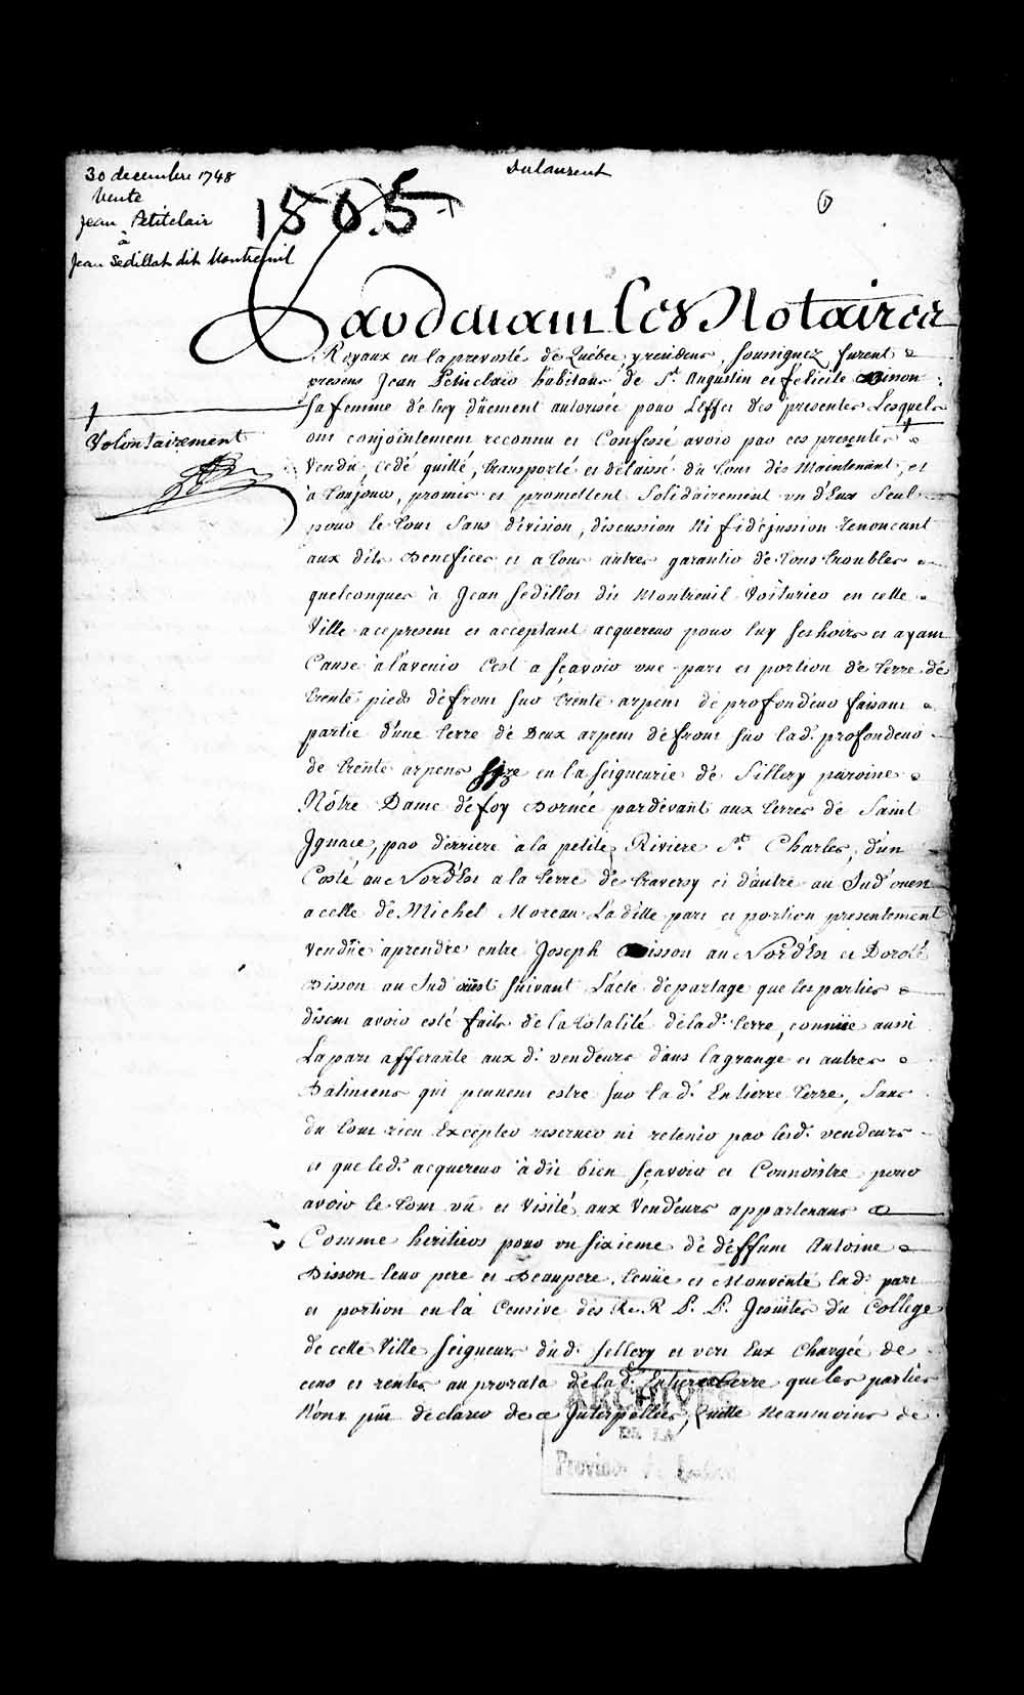 30 decembre 1748
Vente
Jean Petitclair
à
Jean Sedillot dit Montreuil
Dulaurent
1805
Pardevant Les Notaires
Royaux en la prevosté de Québec y residens, soussignez furent
presens Jean Petitclair habitant de St. Augustin et felicité Bisson
sa femme de luy düement autorisée pour L'effet des presentes Lesquels
volontairement
ont conjointement reconnu et Confessé avoir par ces presentes
Vendu, Cedé quitté, transporté et délaissé du tout dès Maintenant, et
à toujours, promis et promettent Solidairement un d'Eux Seul
pour le tout Sans division, discussion Ni fidéjussion renoncant
aux dits Benefices et a tous autres garantir de tous troubles
quelconques à Jean Sedillot dit Montreuil Voiturier en cette
Ville a ce present et acceptant acquereur pour luy ses hoirs et ayant
Cause à l'avenir C'est a sçavoir une part et portion de terre de
trente pieds de front sur trente arpens de profondeur faisant
partie d'une terre de Deux arpens de front sur lad. profondeur
de trente arpens size en la seigneurie de Sillery paroisse
Nôtre Dame de foy Bornée pardevant aux terres de Saint
Ignace, par derriere à la petite Riviere St. Charles, d'un
Costé au Nord'Est a la terre de traversy et d'autre au Sud'ouest
a celle de Michel Moreau La ditte part et portion presentement
Vendüe à prendre entre Joseph Bisson au Nord'Est et Doroté
Bisson au Sud ouest suivant L'acte de partage que les parties
disent avoir esté fait de la totalité de lad. terre, comme aussi
La part afferante aux d. vendeurs dans la grange et autres
Batimens qui peuvent estre sur la d. Entierre terre, Sans
du tout rien Excepter reserver ni retenir par lesd. vendeurs
et que led. acquereur à dit bien sçavoir et Connoistre pour
avoir le tout vû et Visité aux Vendeurs appartenans
Comme heritiers pour un sixieme de deffunt Antoine
Bisson leur pere et Beaupere, tenüe et Mouvante lad. part
et portion en la Censive des R. R. P. P. Jesüites du College
de cette Ville Seigneurs du d. Sillery et vers Eux Chargée de
cens et rentes au prorata de la d. Entiere terre que les parties
N'ont pû declarer de ce Interpellées, quitte Neanmoins de
ARCHIVES
DE LA
Province de Quebec